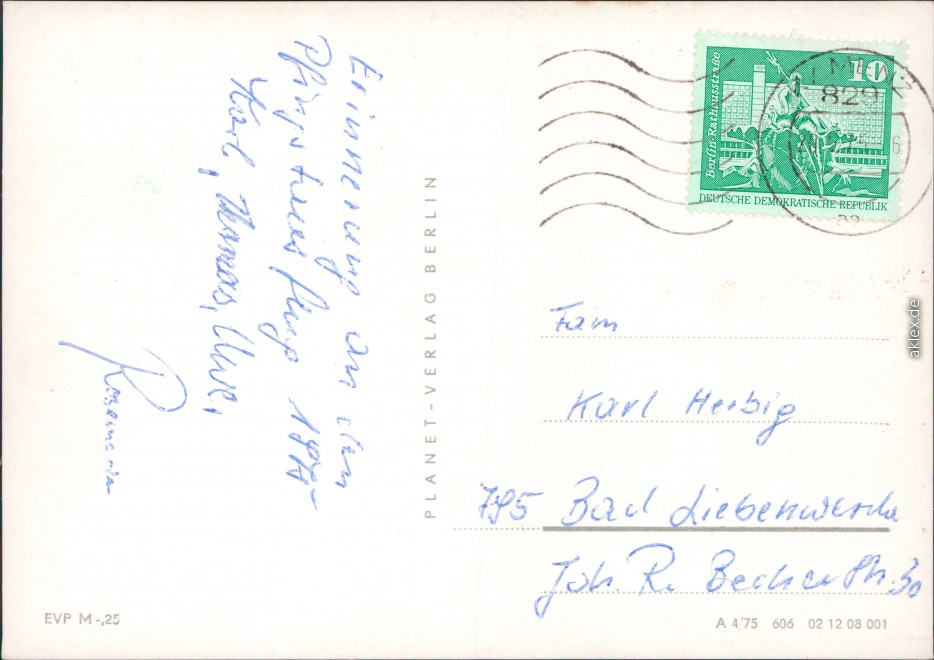 Erinnerung an den
Pfingstausflug 1975
Karl, Thomas, Uwe,
Rosemarie
PLANET-VERLAG BERLIN
EVP M -,25
Berlin-Rathausstraße
10
DEUTSCHE DEMOKRATISCHE REPUBLIK
829
Fam
Karl Herbig
795 Bad Liebenwerda
Joh. R. Becher Str. 30
A 4/75 606 02 12 08 001
aklex.de